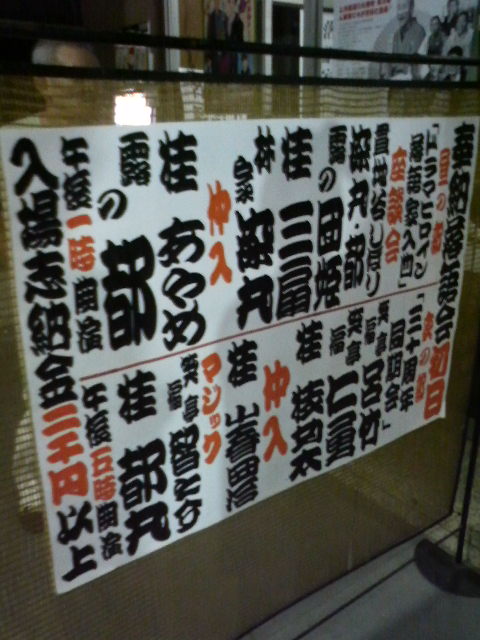 奉納落語会初日
昼の部
「ドラマヒロイン
落語家入門」
豊竹英りょう
染丸・都
座談会
露の団姫
桂三扇
林家染丸
仲入
桂あやめ
露の都
午後一時開演
夜の部
「三十周年
同期会」
笑福亭呂竹
笑福亭仁勇
桂枝女太
仲入
桂小春團治
マジック
笑福亭智とみ
桂都丸
午後五時開演
入場志納金二千円以上